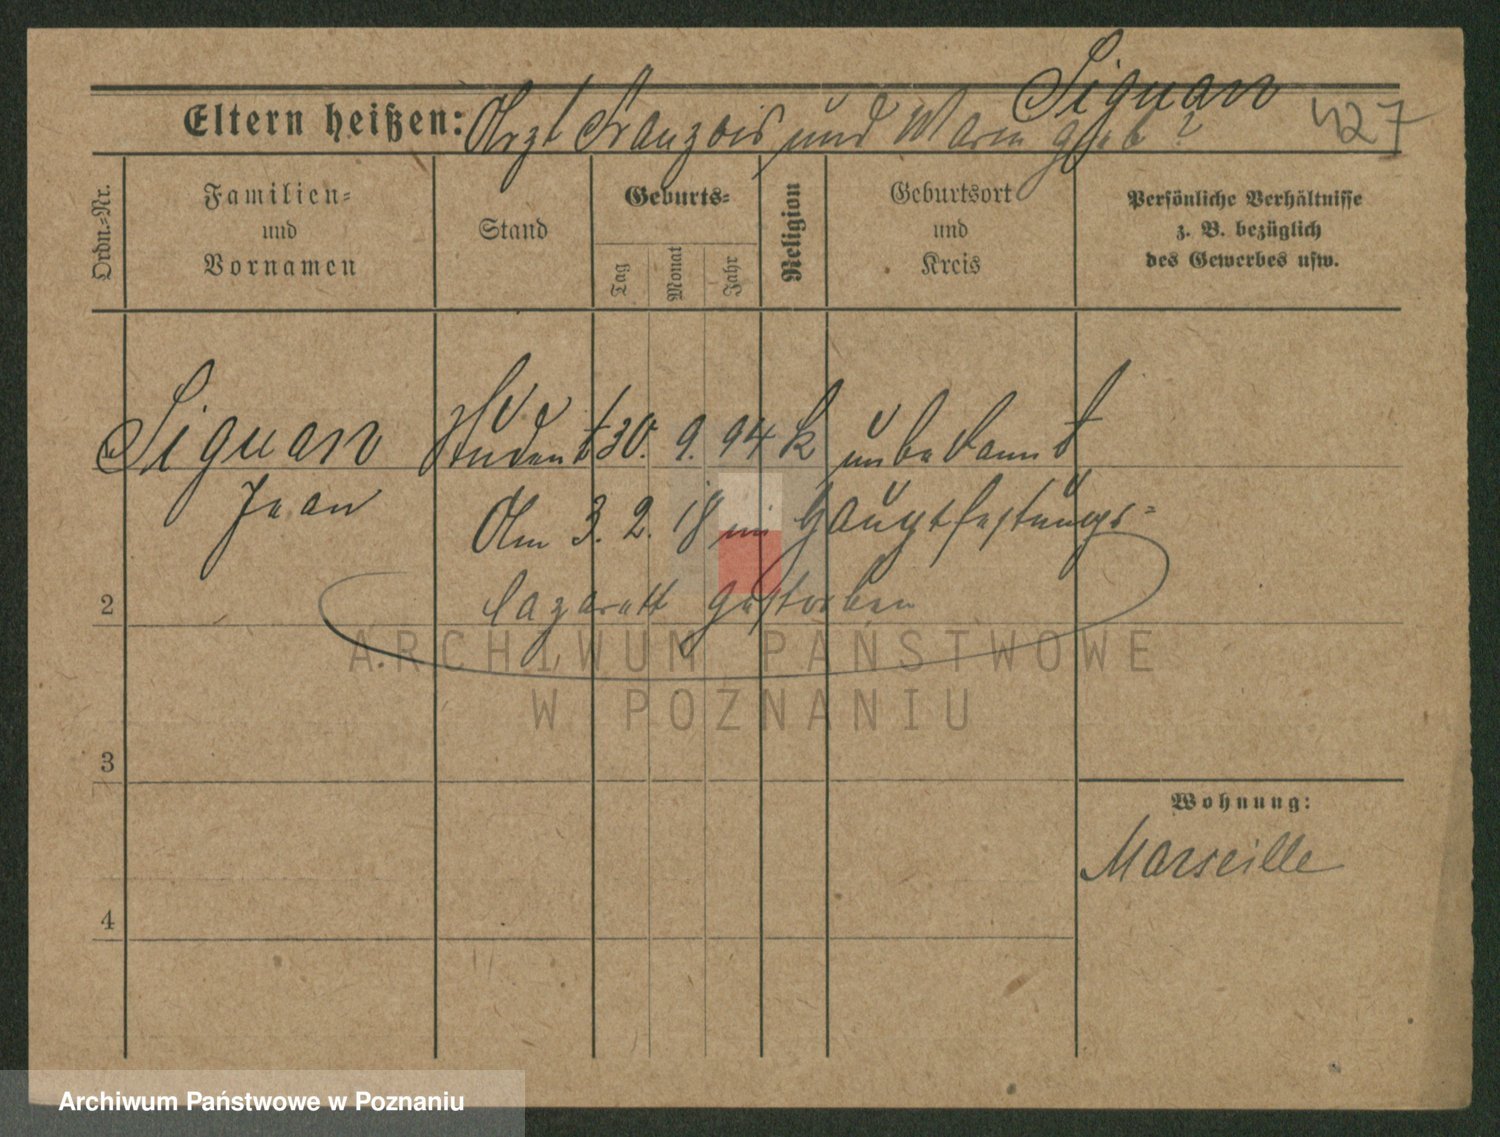 Siguan
Eltern heißen: Arzt Franzois und Marie geb ? 427
Ordn.-Nr.
Familien-
und
Vornamen
Stand
Geburts-
Tag
Monat
Jahr
Religion
Geburtsort
und
Kreis
Persönliche Verhältnisse
z. B. bezüglich
des Gewerbes usw.
Siguan Student 30. 9. 94 k unbekannt
Jean
Am 3. 2. 18 im Hauptfestungs-
2
lazarett gestorben
ARCHIWUM PAŃSTWOWE
W POZNANIU
3
Wohnung:
Marseille
4
Archiwum Państwowe w Poznaniu